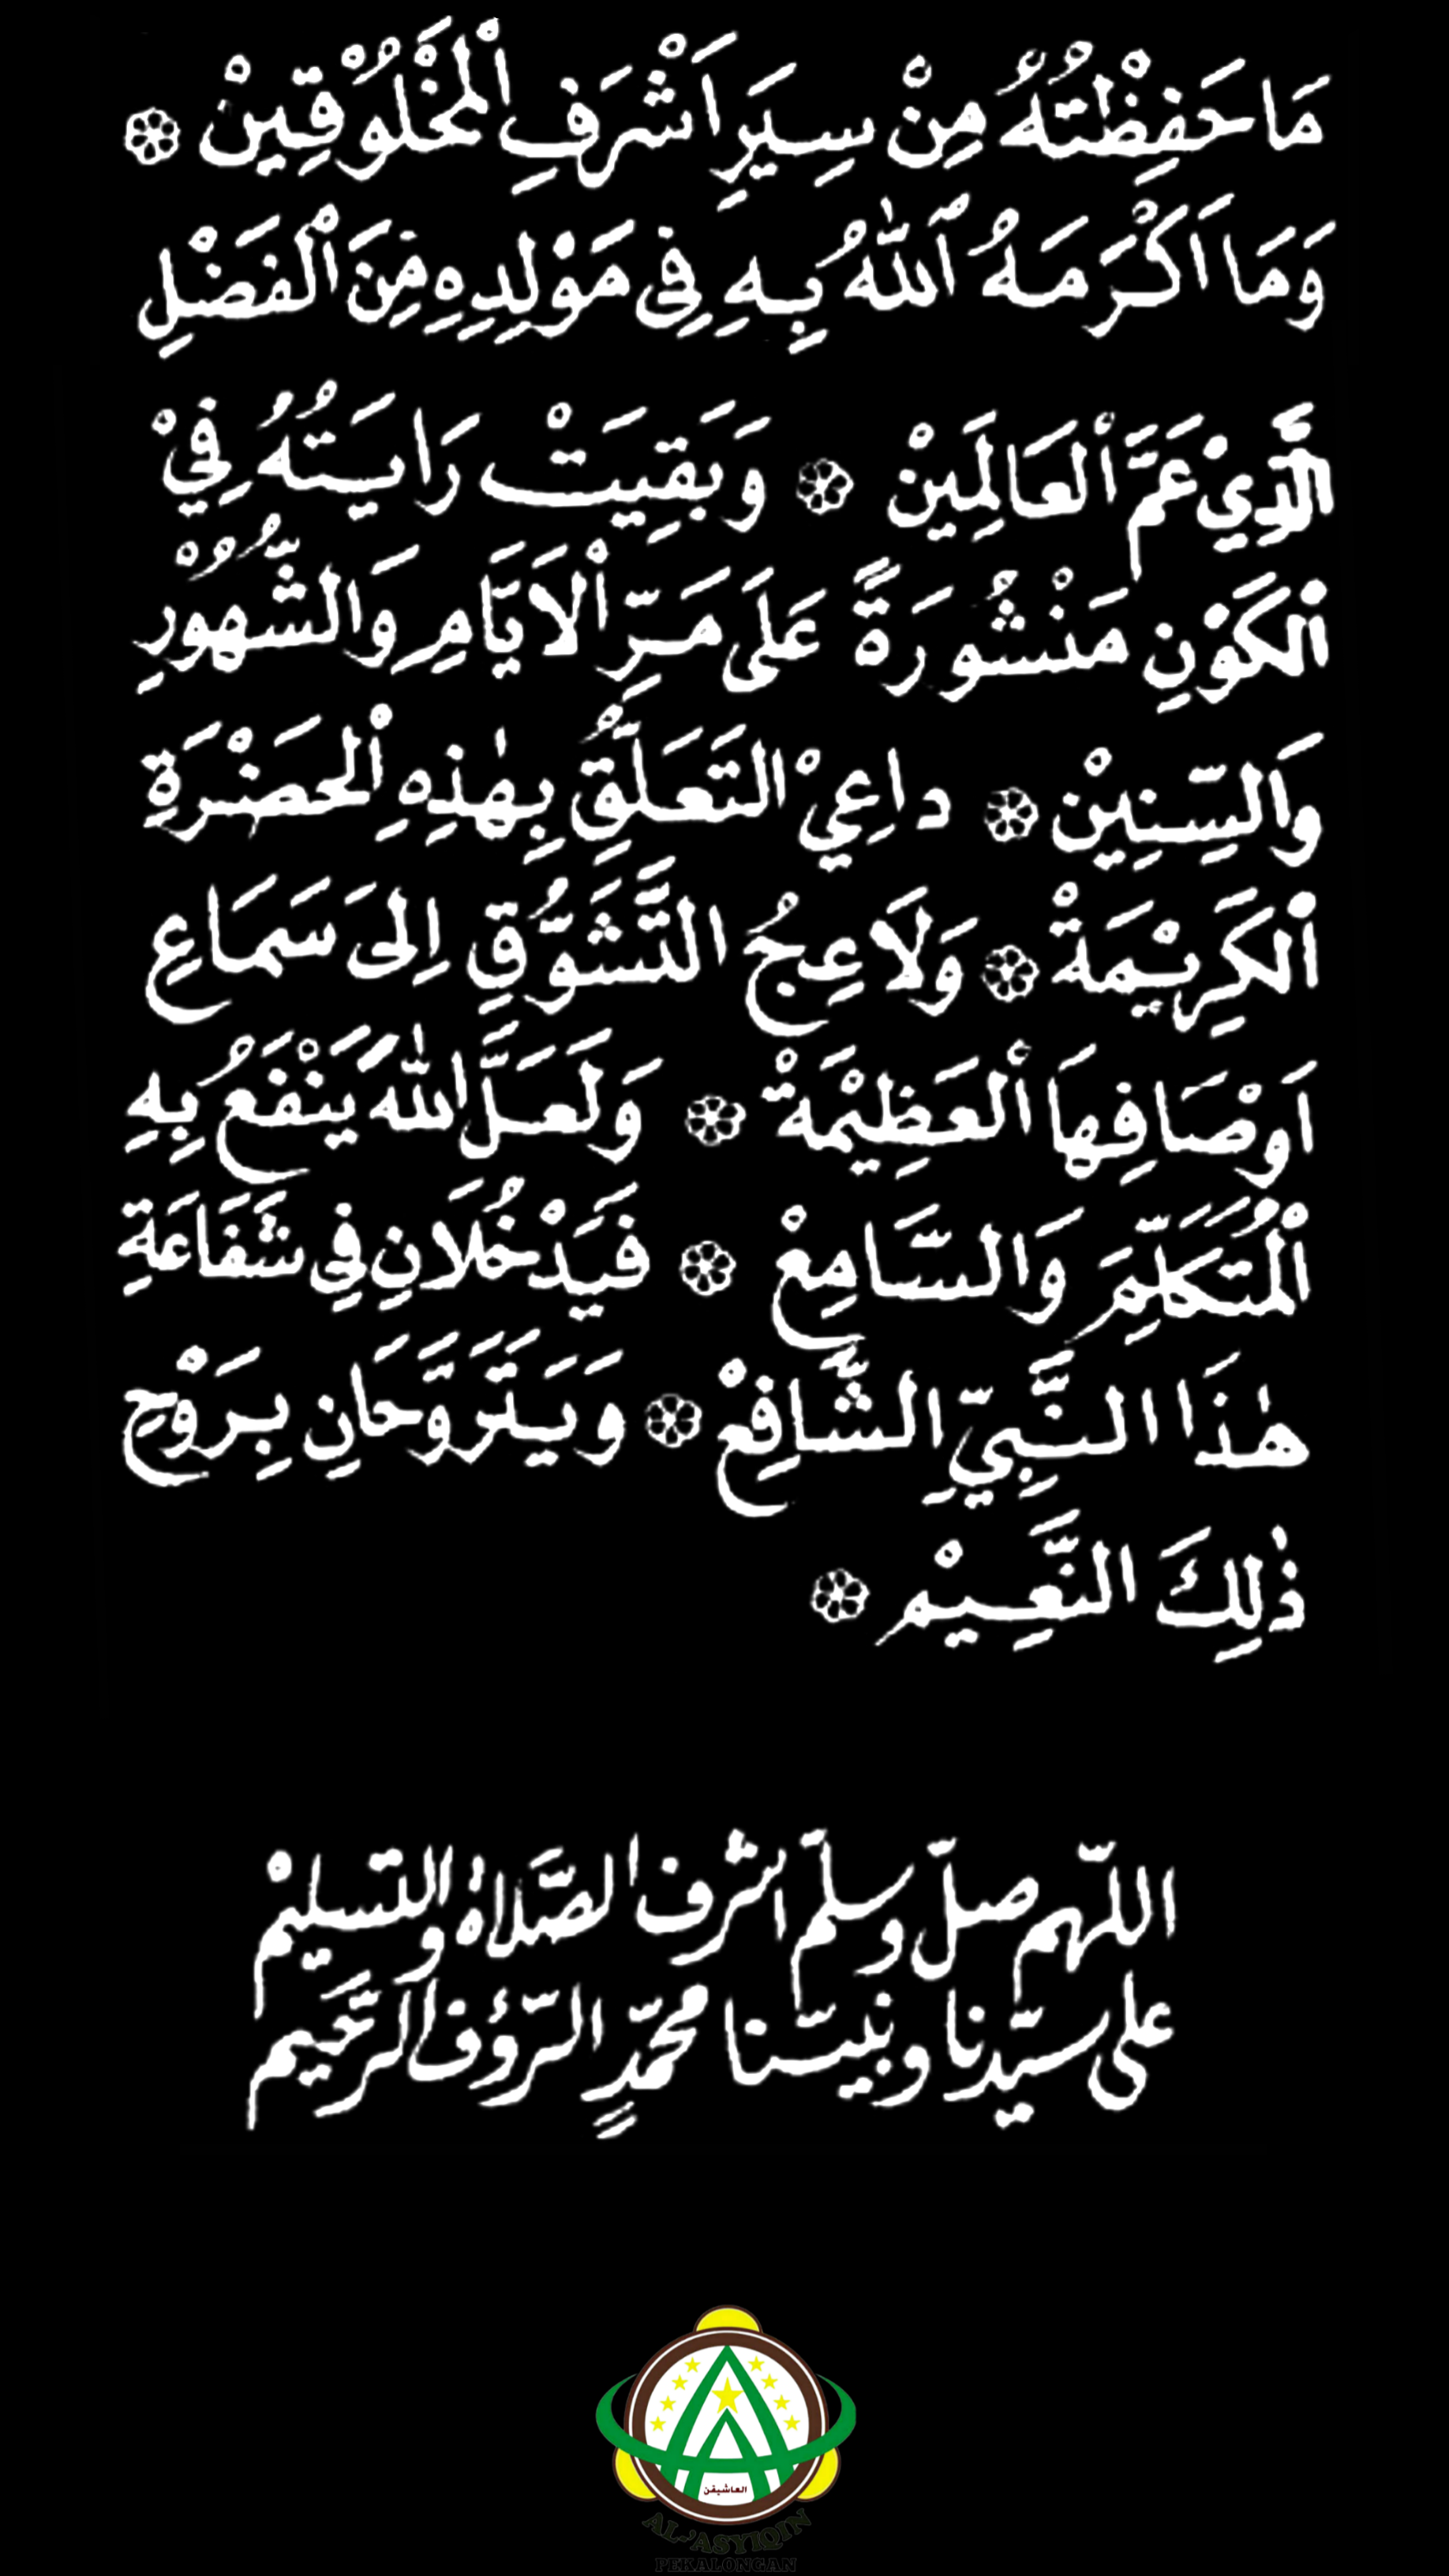 مَا حَفِظْتُهُ مِنْ سِيَرِ اَشْرَفِ الْمَخْلُوْقِيْنْ ۞
وَمَا اَكْرَمَهُ اللهُ بِهِ فِى مَوْلِدِهِ مِنَ الْفَضْلِ
الَّذِيْ عَمَّ الْعَالَمِيْنْ ۞ وَبَقِيَتْ رَايَتُهُ فِيْ
الْكَوْنِ مَنْشُورَةً عَلَى مَرِّ الْاَيَّامِ وَالشُّهُوْرِ
وَالسِّنِيْنْ ۞ دَاعِيْ التَّعَلُّقِ بِهٰذِهِ الْحَضْرَةِ
الْكَرِيْمَةْ ۞ وَلَاعِجُ التَّشَوُّقِ اِلَى سَمَاعِ
اَوْصَافِهَا الْعَظِيْمَةْ ۞ وَلَعَلَّ اللهَ يَنْفَعُ بِهِ
الْمُتَكَلِّمَ وَالسَّامِعْ ۞ فَيَدْخُلَانِ فِي شَفَاعَةِ
هٰذَا النَّبِيِّ الشَّافِعْ ۞ وَيَتَرَوَّحَانِ بِرَوْحِ
ذٰلِكَ النَّعِيْمْ ۞
اللّهم صلّ وسلّم اشرف الصّلاة والتسليمْ
على سيّدنا ونبيّنا محمّدٍ الرّؤف الرّحيم
العاشيقن
AL-'ASYIQIN
PEKALONGAN